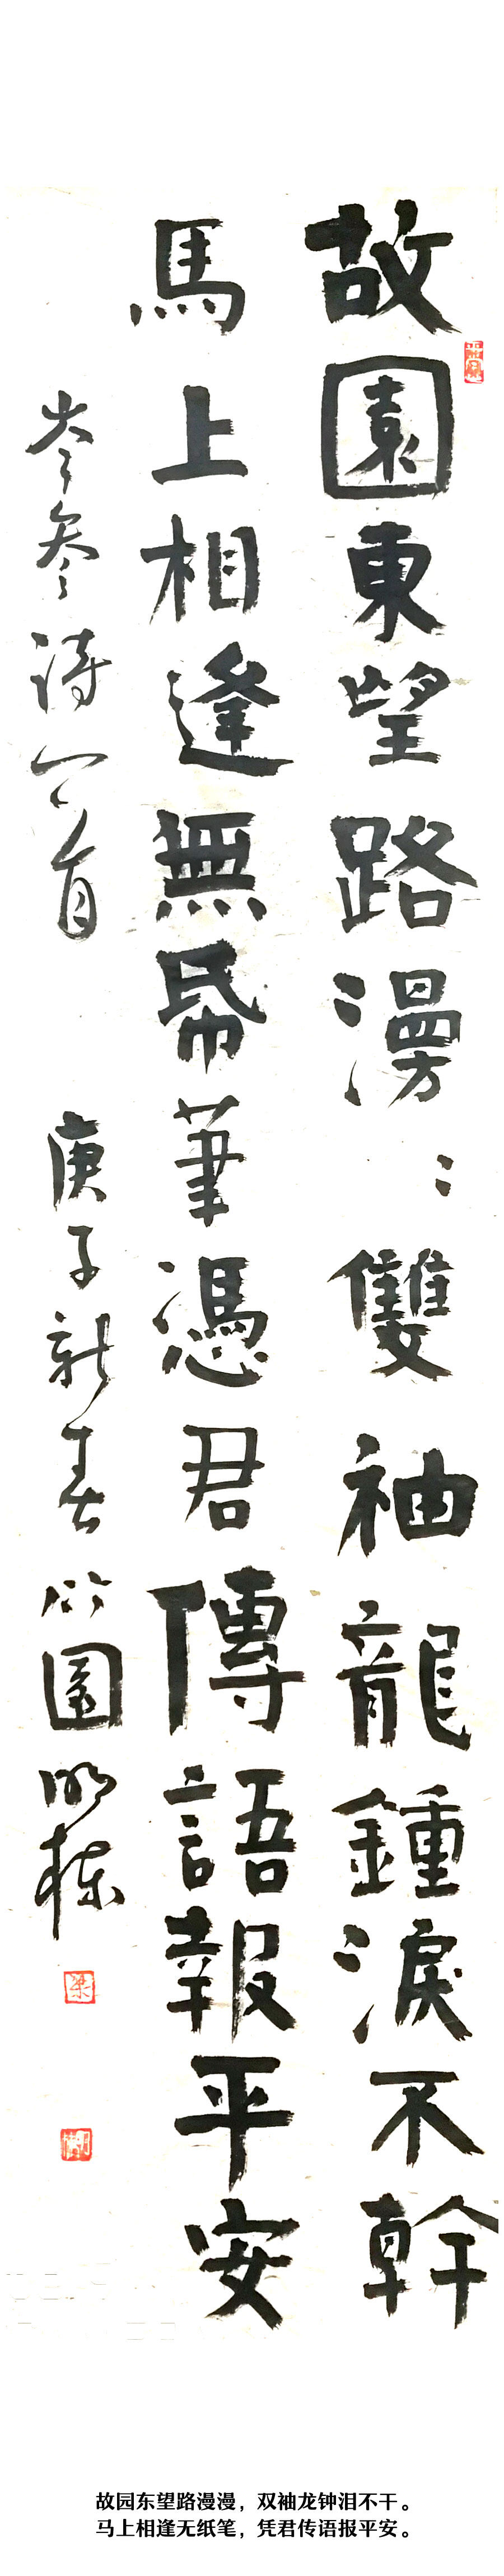 故園東望路漫：雙袖龍鍾淚不幹
馬上相逢無帋筆憑君傳語報平安
岑參詩一首 庚子新春 竹園 明棟
故园东望路漫漫，双袖龙钟泪不干。
马上相逢无纸笔，凭君传语报平安。